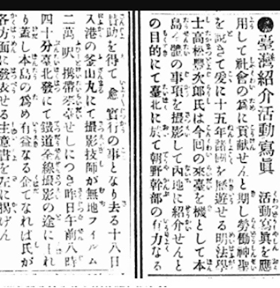 ●臺灣紹介活動寫眞 活動寫眞を應
用して社會の爲に貢献せんと期し勞働神聖
を說きて愛に十五年諸國を歷遊せる明法學
士高松豊次郎氏は今回の來臺を機として本
島一體の事項を撮影して內地に紹介せんと
の目的にて臺北に於て朝野幹部の有力なる
助を得て愈實行の事となり去る十八日
入港の釜山丸にて撮影技師が無地フィルム
二萬呎携帶來臺せしにつき昨日午前 時
四十分臺北發にて鐵道全線撮影の途に上れ
り蓋し本島の爲め有益なる企なれば其が
各方面に發表せる主意書を左に揭げん